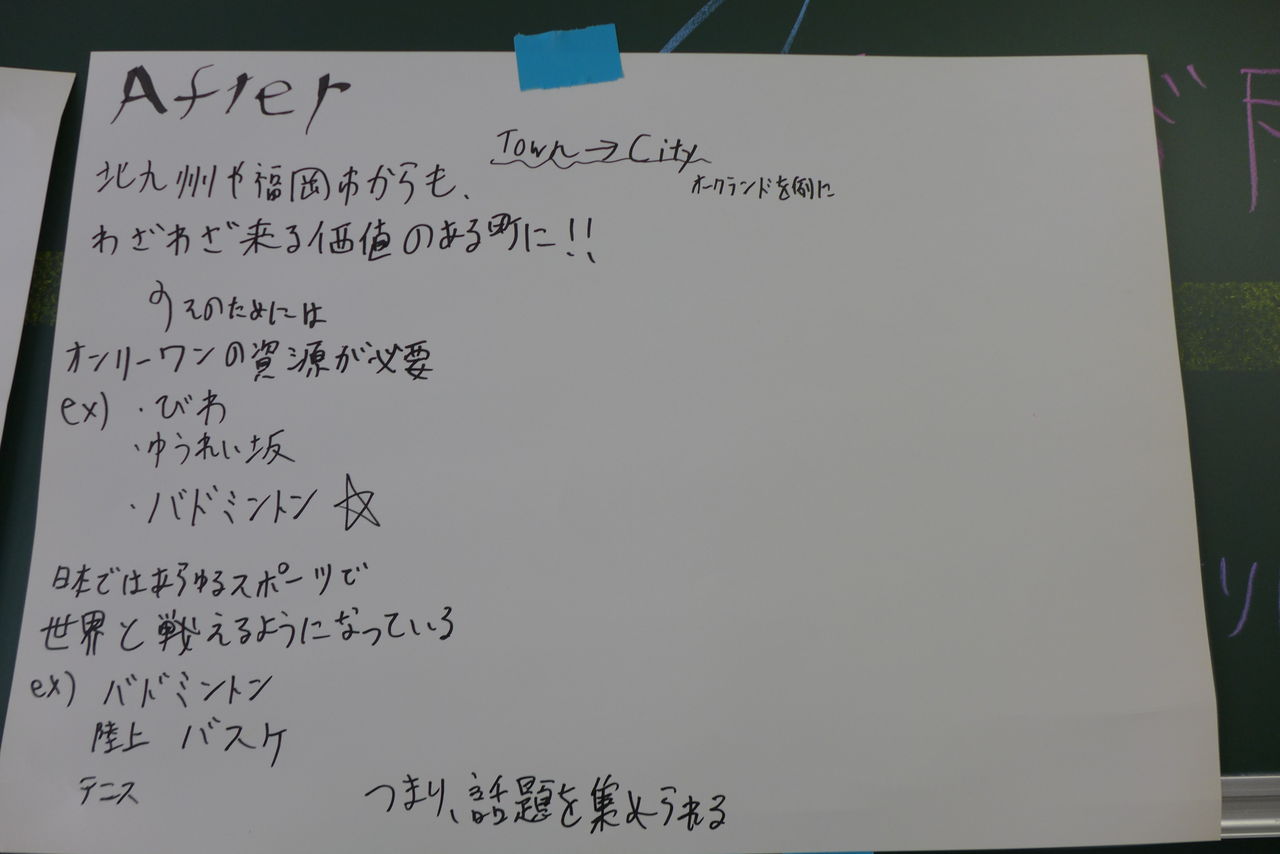 After
Town→City
オークランドを例に
北九州や福岡市からも、
わざわざ来る価値のある町に!!
そのためには
オンリーワンの資源が必要
ex) ・びわ
・ゆうれい坂
・バドミントン ☆
日本ではあらゆるスポーツで
世界と戦えるようになっている
ex) バドミントン
陸上 バスケ
テニス
つまり、話題を集められる